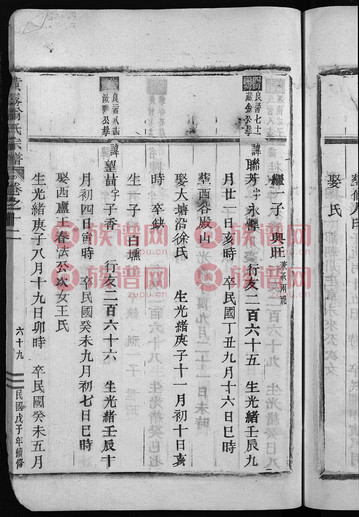 娶氏
繼一子 興旺 兼承兩祧
良活七士 諱 聯芳 字永樽 行亥二百六十五 生光緒壬辰九
月廿一日亥時 卒民國丁丑九月十六日巳時
葬西谷殿山
娶大塘沿徐氏 生光緒庚子十一月初十日亥
時 卒缺
生一子 白壎
諱 望喆 字子香 行亥二百六十六 生光緒壬辰十
月初四日寅時 卒民國癸未九月初七日巳時
娶西盧王春法公次女王氏
生光緒庚子八月十九日卯時 卒民國癸未五月
氏宗譜 卷之十二
六十九
民國戊子年續修
族谱网
zupu.cn